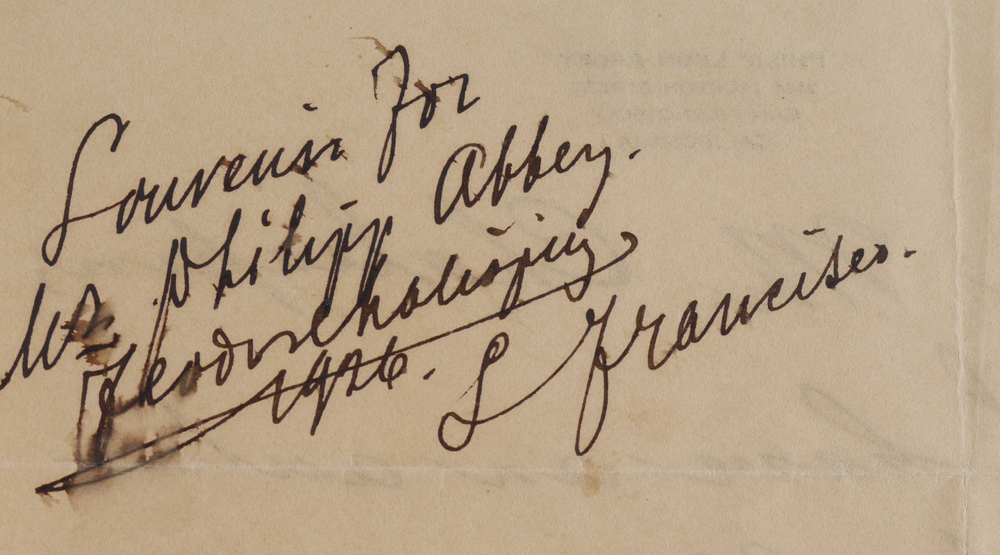 Souvenir For
Mr. Philipp Abbey.
Feodor Chaliapin
1926. S Francisco.